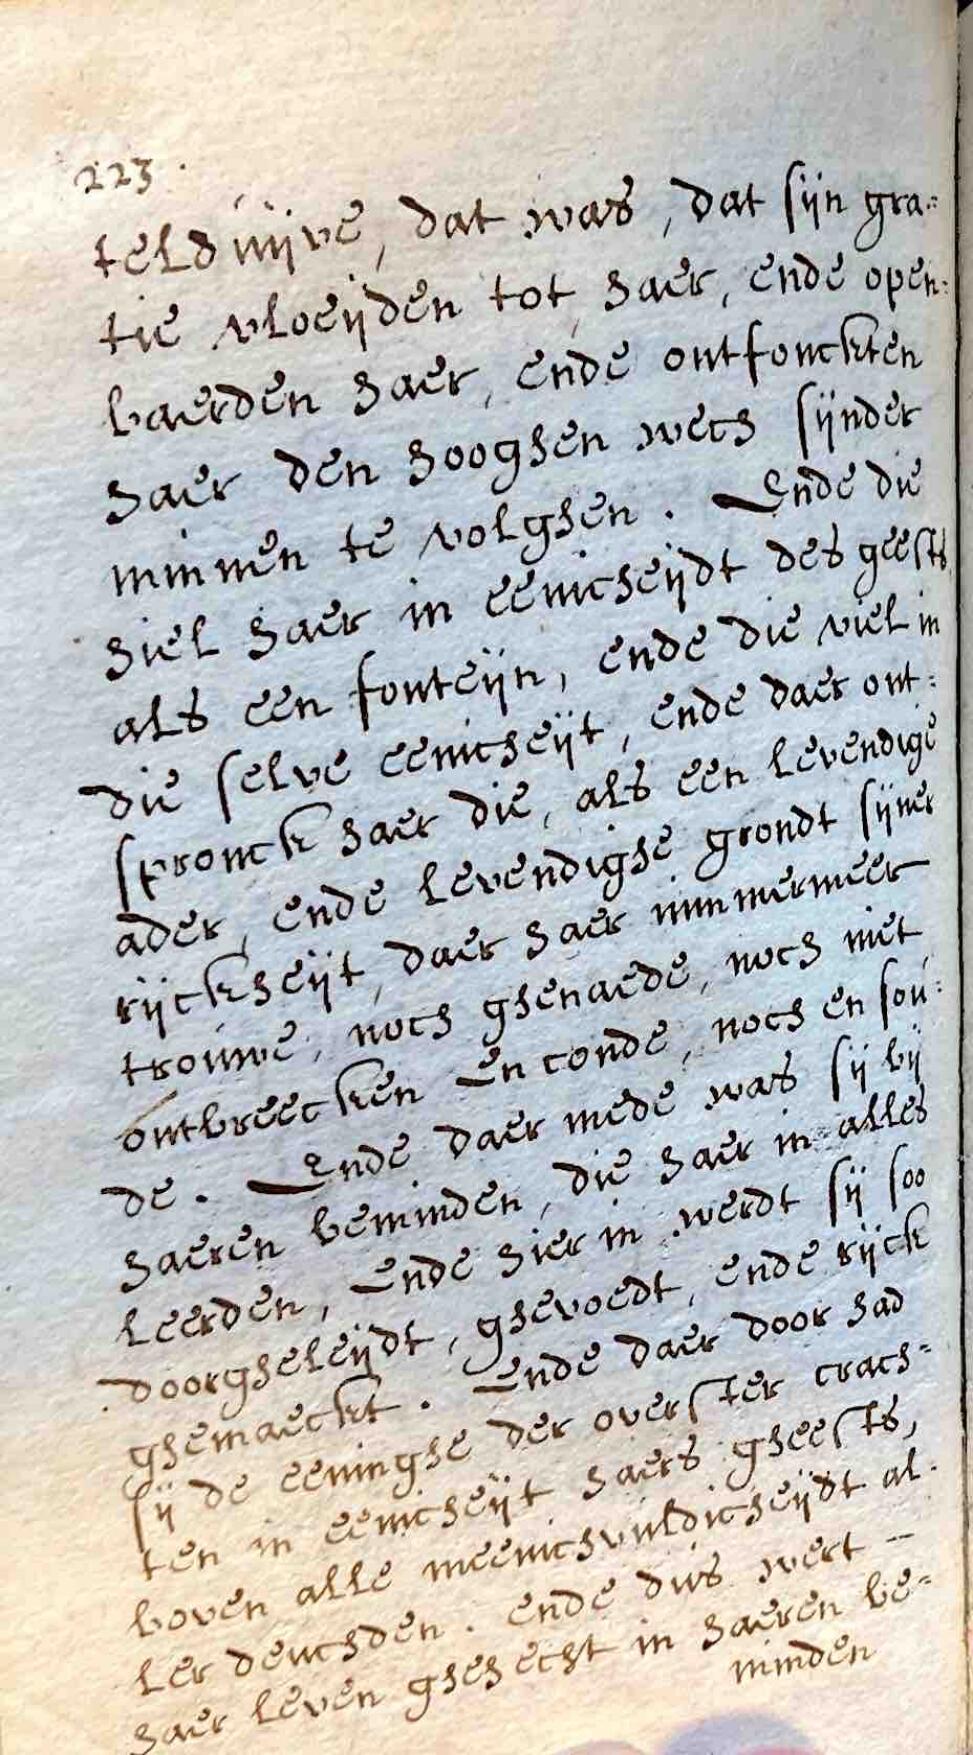 223.
telduijve, dat was, dat sijn gra=
tie vloeijden tot haer, ende open=
baerden haer, ende ontfonckten
haer den hooghen wech sijnder
minnen te volghen. Ende die
hiel haer in eenicheijdt des geests,
als een fonteijn, ende die viel in
die selve eenicheijt, ende daer ont=
spronck haer die, als een levendige
ader, ende levendighe grondt sijner
rijckheijt, daer haer nimmermeer
trouwe, noch ghenaede, noch niet
ontbreecken en conde, noch en sou=
de. Ende daer mede was sij bij
haeren beminden, die haer in alles
leerden, ende hier in werdt sij soo
doorgheleijdt, ghevoedt, ende rijck
ghemaeckt. Ende daer door had
sij de eeninghe der overster crach=
ten in eenicheijt haers gheests,
boven alle meenichvuldicheijdt al=
ler deuchden. Ende dus wert –
haer leven ghehecht in haeren be=
minden